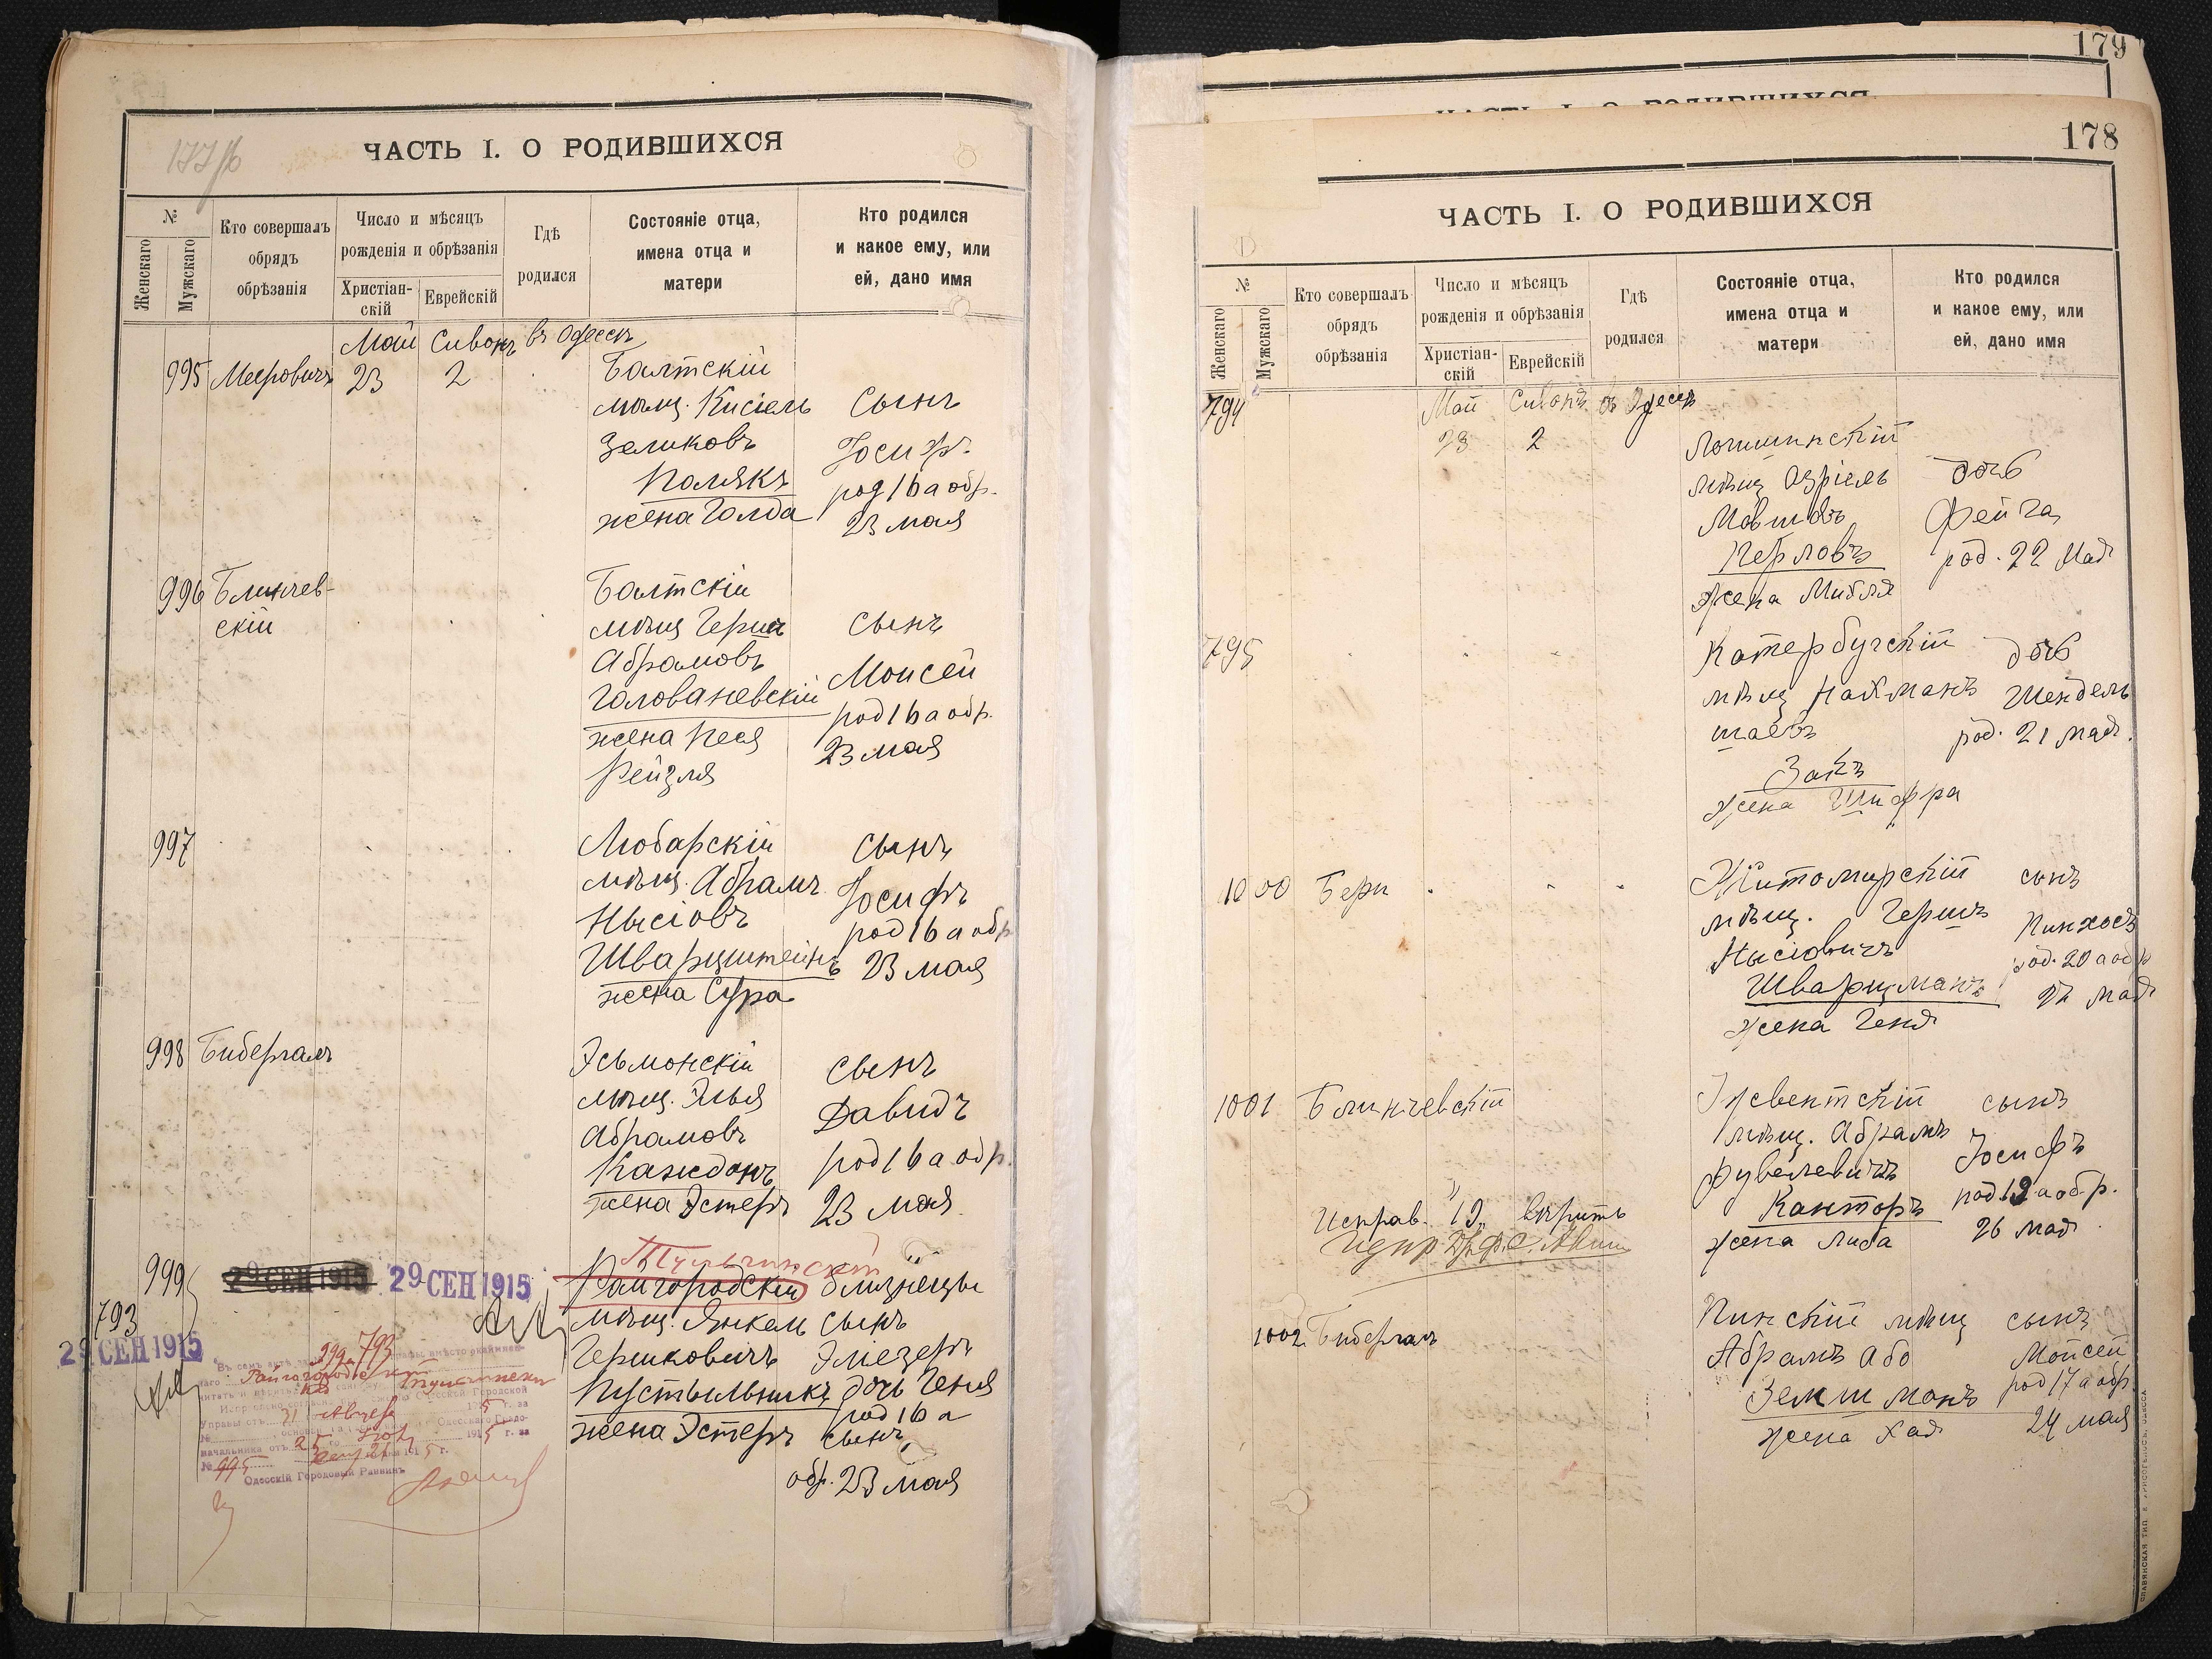 177/б
ЧАСТЬ I. О РОДИВШИХСЯ
№
Женскаго
Мужскаго
Кто совершалъ
обрядъ
обрѣзанія
Число и мѣсяцъ
рожденія и обрѣзанія
Христіан-
скій
Еврейскій
Гдѣ
родился
Состояніе отца,
имена отца и
матери
Кто родился
и какое ему, или
ей, дано имя
Май Сивонъ въ Одессѣ
995 Мееровичъ 23 2 Балтскій
мѣщ. Кисіель Сынъ
Зеликовъ Іосифъ
Полякъ род 16 а обр.
жена Голда 23 мая
996 Блинчев-
скій
Балтскій
мѣщ Гершъ Сынъ
Абрамовъ Моисей
Голованевскій род 16 а обр.
жена Песя 23 мая
Рейзля
997 Любарскій Сынъ
мѣщ. Абрамъ Іосифъ
Нысіовъ род 16 а обр
Шварцштейнъ 23 мая
жена Сура
998 Бибергалъ Эсьмонскій Сынъ
мѣщ. Элья Давидъ
Абрамовъ род 16 а обр.
Каждонъ 23 мая
жена Эстеръ
999 29 СЕН 1915 29 СЕН 1915 Тульчинскій
Райгородскій близнецы
793 мѣщ. Янкель Сынъ
29 СЕН 1915 Гершковичъ Элезеръ
Пустыльникъ дочь Геня
жена Эстеръ род 16 а
сынъ
обр. 23 мая
999 793
Райгородскій
Тульчинскій
Городской
Управы отъ 31 Августа 1915 г. за
Одесскаго Градо-
начальника отъ 25 1915 г.
№ 995
Одесскій Городовой Раввинъ
179
ЧАСТЬ I. О РОДИВШИХСЯ
178
ЧАСТЬ I. О РОДИВШИХСЯ
№
Женскаго
Мужскаго
Кто совершалъ
обрядъ
обрѣзанія
Число и мѣсяцъ
рожденія и обрѣзанія
Христіан-
скій
Еврейскій
Гдѣ
родился
Состояніе отца,
имена отца и
матери
Кто родился
и какое ему, или
ей, дано имя
794 Май Сивонъ въ Одессѣ
23 2 Логишинскій
мѣщ Озріель дочь
Мовшовъ Фейга
Перловъ род. 22 Мая
жена Мибля
795 Катербугскій дочь
мѣщ Нахманъ Шендель
Шаевъ род. 21 мая.
Закъ
жена Шифра
1000 Бери Житомирскій сынъ
мѣщ. Гершъ Пинхосъ
Нысіовичъ род. 20 а обр
Шварцманъ 27 мая
жена Геня
1001 Блинчевскій сынъ
мѣщ. Абрамъ Іосифъ
Фувелевичъ род 19 а обр.
Канторъ 26 мая
жена Либа
Исправ. "19" вѣрить
1002 Бибергалъ Пинскій мѣщ сынъ
Абрамъ Або Мойсей
Земшманъ род 17 а обр.
жена Хая 24 мая